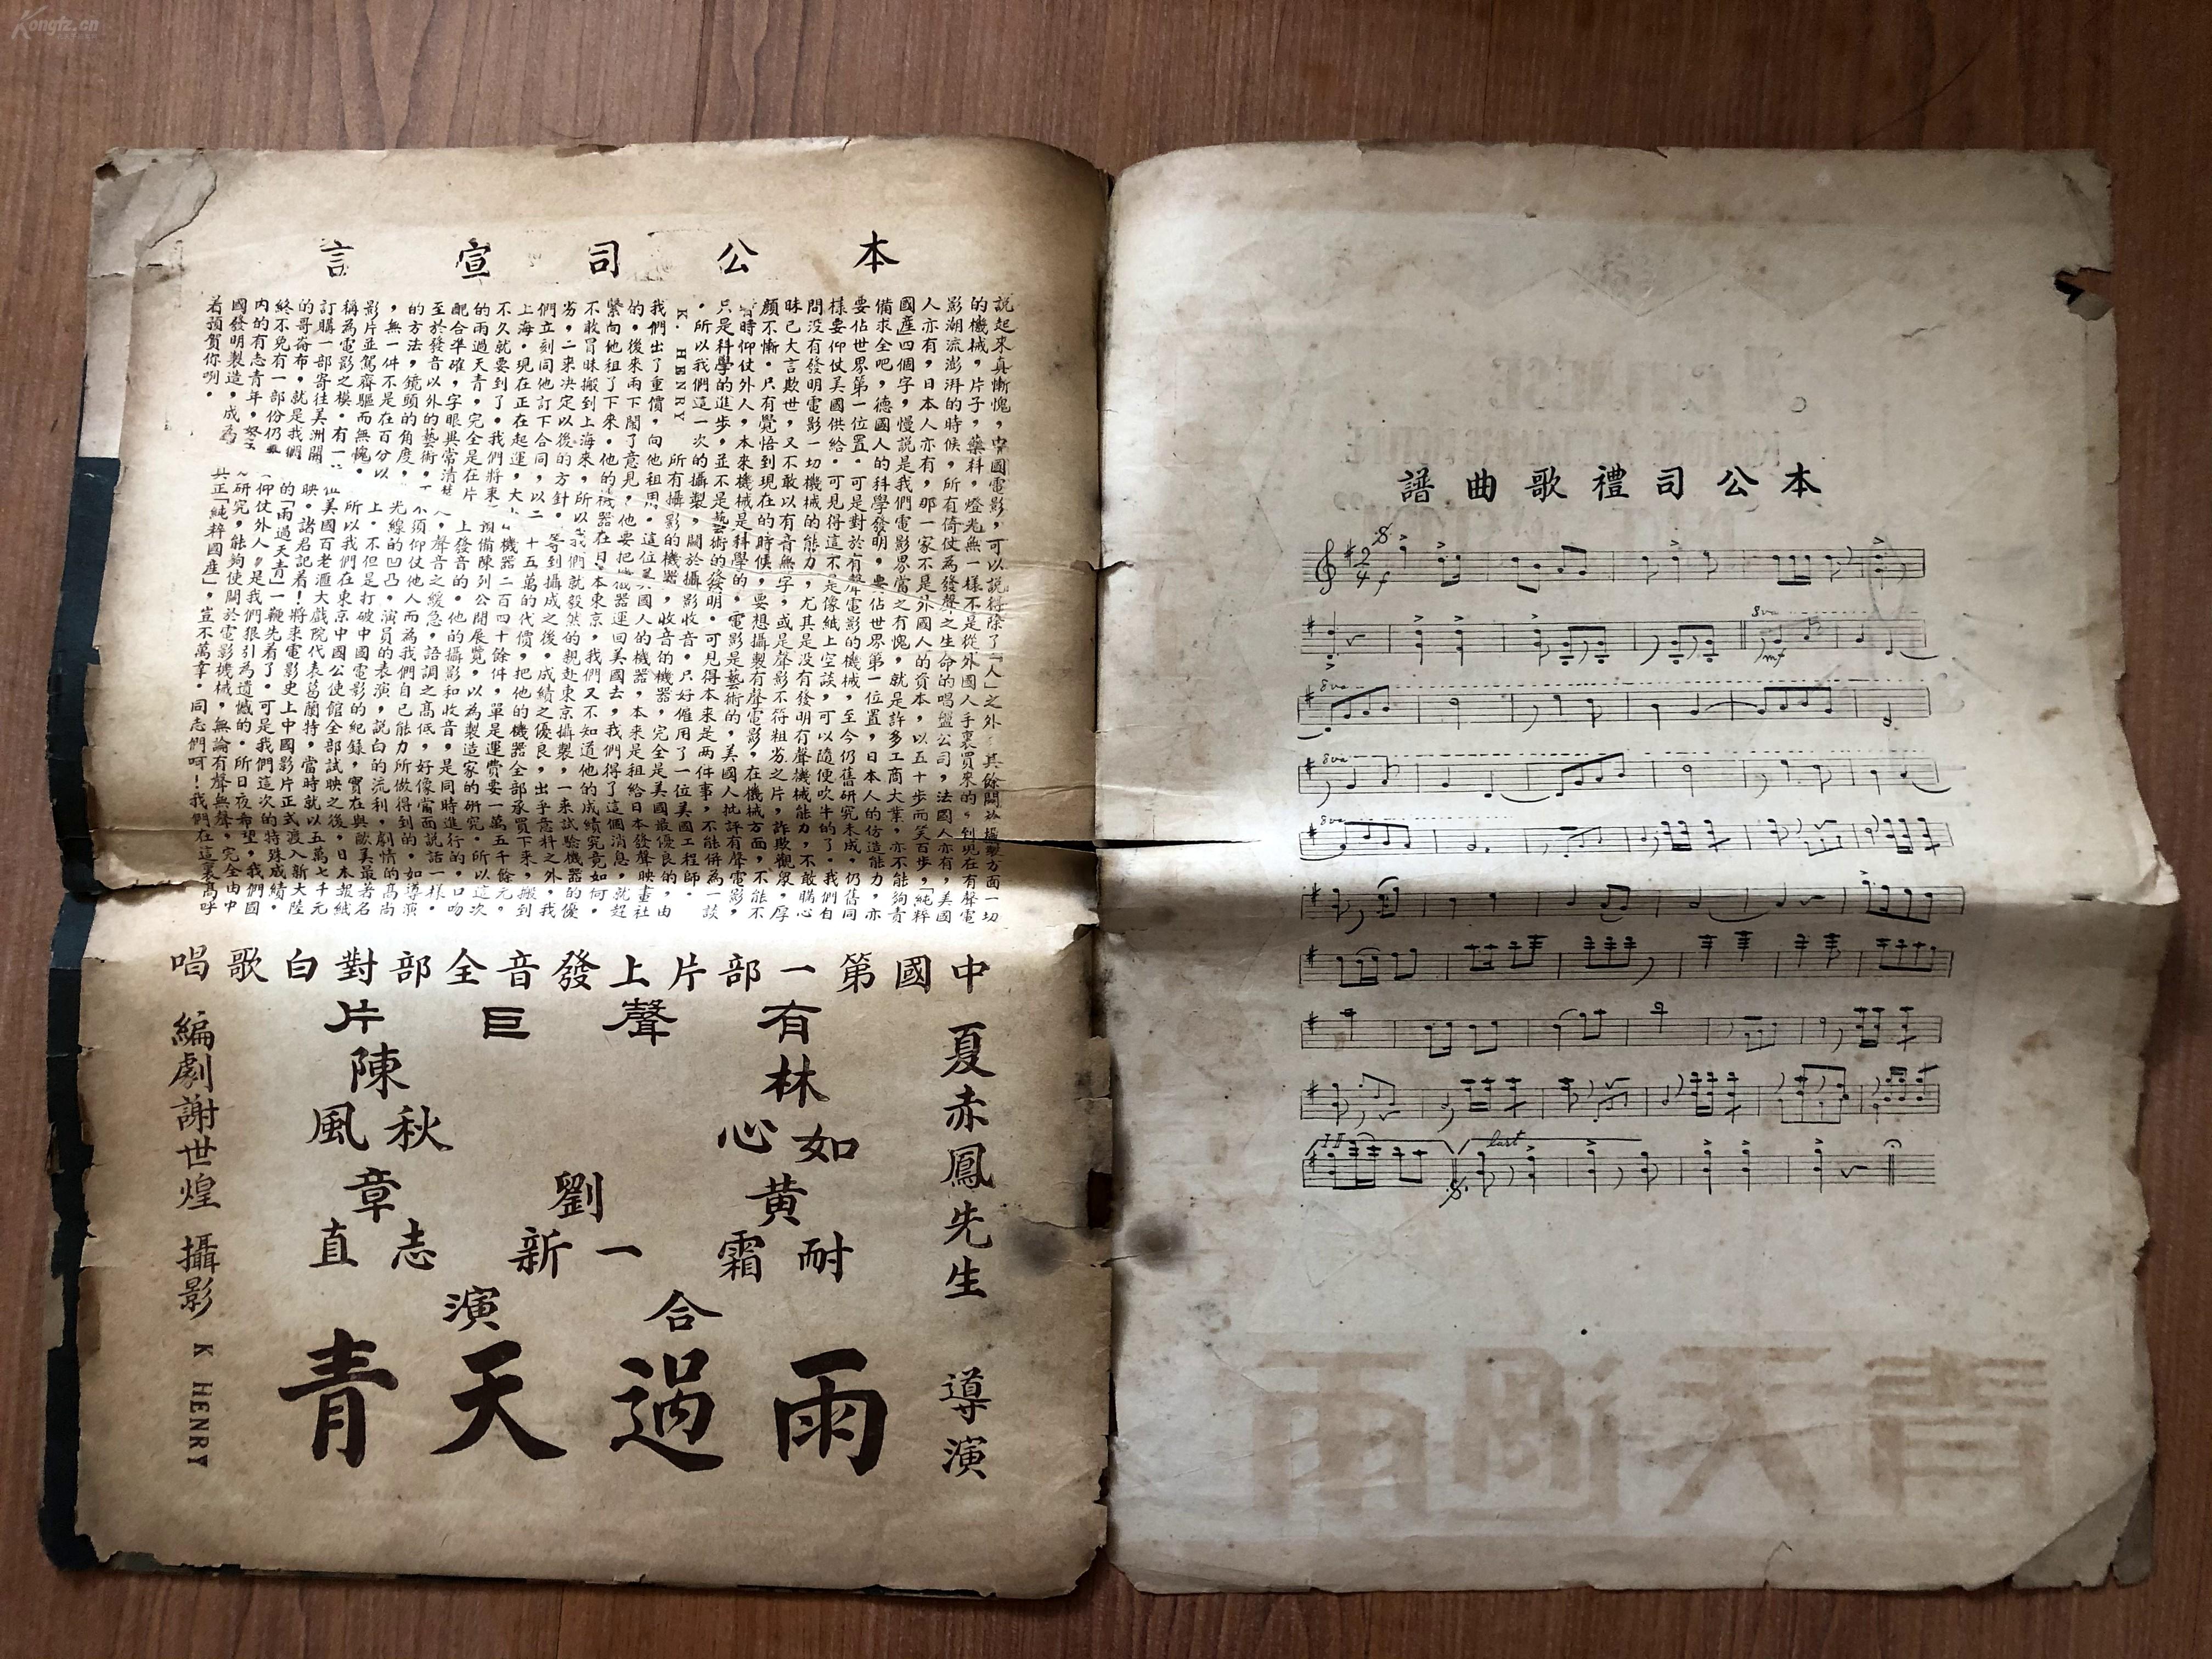 本公司宣言
說起來真慚愧，中國電影，可以說得除了『人』之外，其餘關於攝製方面一切
的機械，片子，藥料，燈光無一樣不是從外國人手裏買來的，到現在有聲電
影潮流澎湃的時候，所有倚仗為發聲之生命的唱盤公司，法國人亦有，美國
人亦有，日本人亦有，那一家不是外國人的資本，以五十步而笑百步，「純粹
國產」四個字，慢說是我們電影界當之有愧，就是許多工商大業，亦不能夠責
備求全吧，德國人的科學發明，要佔世界第一位置，日本人的仿造能力，亦
要佔世界第一位置。可是對於有聲電影的機械，至今仍舊研究未成，仍舊同
樣要仰仗美國供給。可見得這不是像紙上空談，可以隨便吹牛的了。我們自
問没有發明電影一切機械的能力，尤其是没有發明有聲機械能力，不敢瞞心
昧己大言欺世，又不敢以有音無字，或是聲影不符粗劣之片，詐欺觀眾，厚
顏不慚。只有覺悟到現在的時候，要想攝製有聲電影。在機械方面，不能不
時仰仗外人，本來機械是科學的，電影是藝術的，美國人批評有聲電影，
只是科學的進步，並不是藝術的發明。可見得本來是两件事，不能併為一談
。所以我們這一次的攝製，關於攝影收音。只好僱用了一位美國工程師．
K. HENRY 所有攝影的機器，收音的機器，完全是美國最優良的，由
我們出了重價，向他租用。這位美國人的機器，本來是租給日本發聲映畫社
的，後來兩下鬧了意見，他要把機器運回美國去，我們得了這個消息，就趕
緊向他租了下來。他的機器在日本東京，我們又不知道他的成績究竟如何。
不敢冒昧搬到上海來，所以我們就毅然的親赴東京攝製，一來試驗機器的優
劣，二來决定以後的方針。等到攝成之後，成績之優良，出乎意料之外，我
們立刻同他訂下合同，以二十五萬的代價，把他的機器全部承買下來，搬到
上海。現在正在起運，大機器二百四十餘件，單是運費要一萬五千餘元。
不久就要到了。我們將來預備陳列公開展覽，以為製造家的研究。所以這次
的雨過天青，完全是在片上發音的。他的攝影和收音，是同時進行的。口吻
配合準確，字眼異常清楚，聲音之緩急，語調之高低，好像當面説話一樣。
至於發音以外的藝術，不須仰仗他人而為我們自己能力所做得到的。如導演
的方法，鏡頭的角度，光線的凹凸。演員的表演，説白的流利，劇情的高尚
，無一件不是在百分以上。不但是打破中國電影的紀錄，實在與歐美最著名
影片並駕齊驅而無愧。所以我們在東京中國公使館全部試映之後，日本報紙
稱為電影之模。有一位美國百老滙大戲院代表葛蘭特，當時就以五萬七千元
訂購一部寄往美洲開映。諸君記着！將來電影史上中國影片正式渡入新大陸
的哥崙布，就是我們的「雨過天青」一鞭先着了。可是我們這次的特殊成績，
終不免有一部份仍要仰仗外人。是我們狠引為遺憾的。所日夜希望，我們國
内的有志青年，努研究，能夠使關於電影機械，無論有聲無聲，完全由中
國發明製造，成為真正「純粹國產」，豈不萬幸。同志們呵！我們在這裏高呼
着預賀你咧。
中國第一部片上發音全部對白歌唱
有聲巨片
夏赤鳳先生 導演
林如心
陳秋風
黄耐霜
劉一新
章志直
合演
雨過天青
編劇謝世煌 攝影 K HENRY
本公司禮歌曲譜
f
8va
mf
8va
8va
8va
II
last
雨過天青
Kongfz.cn